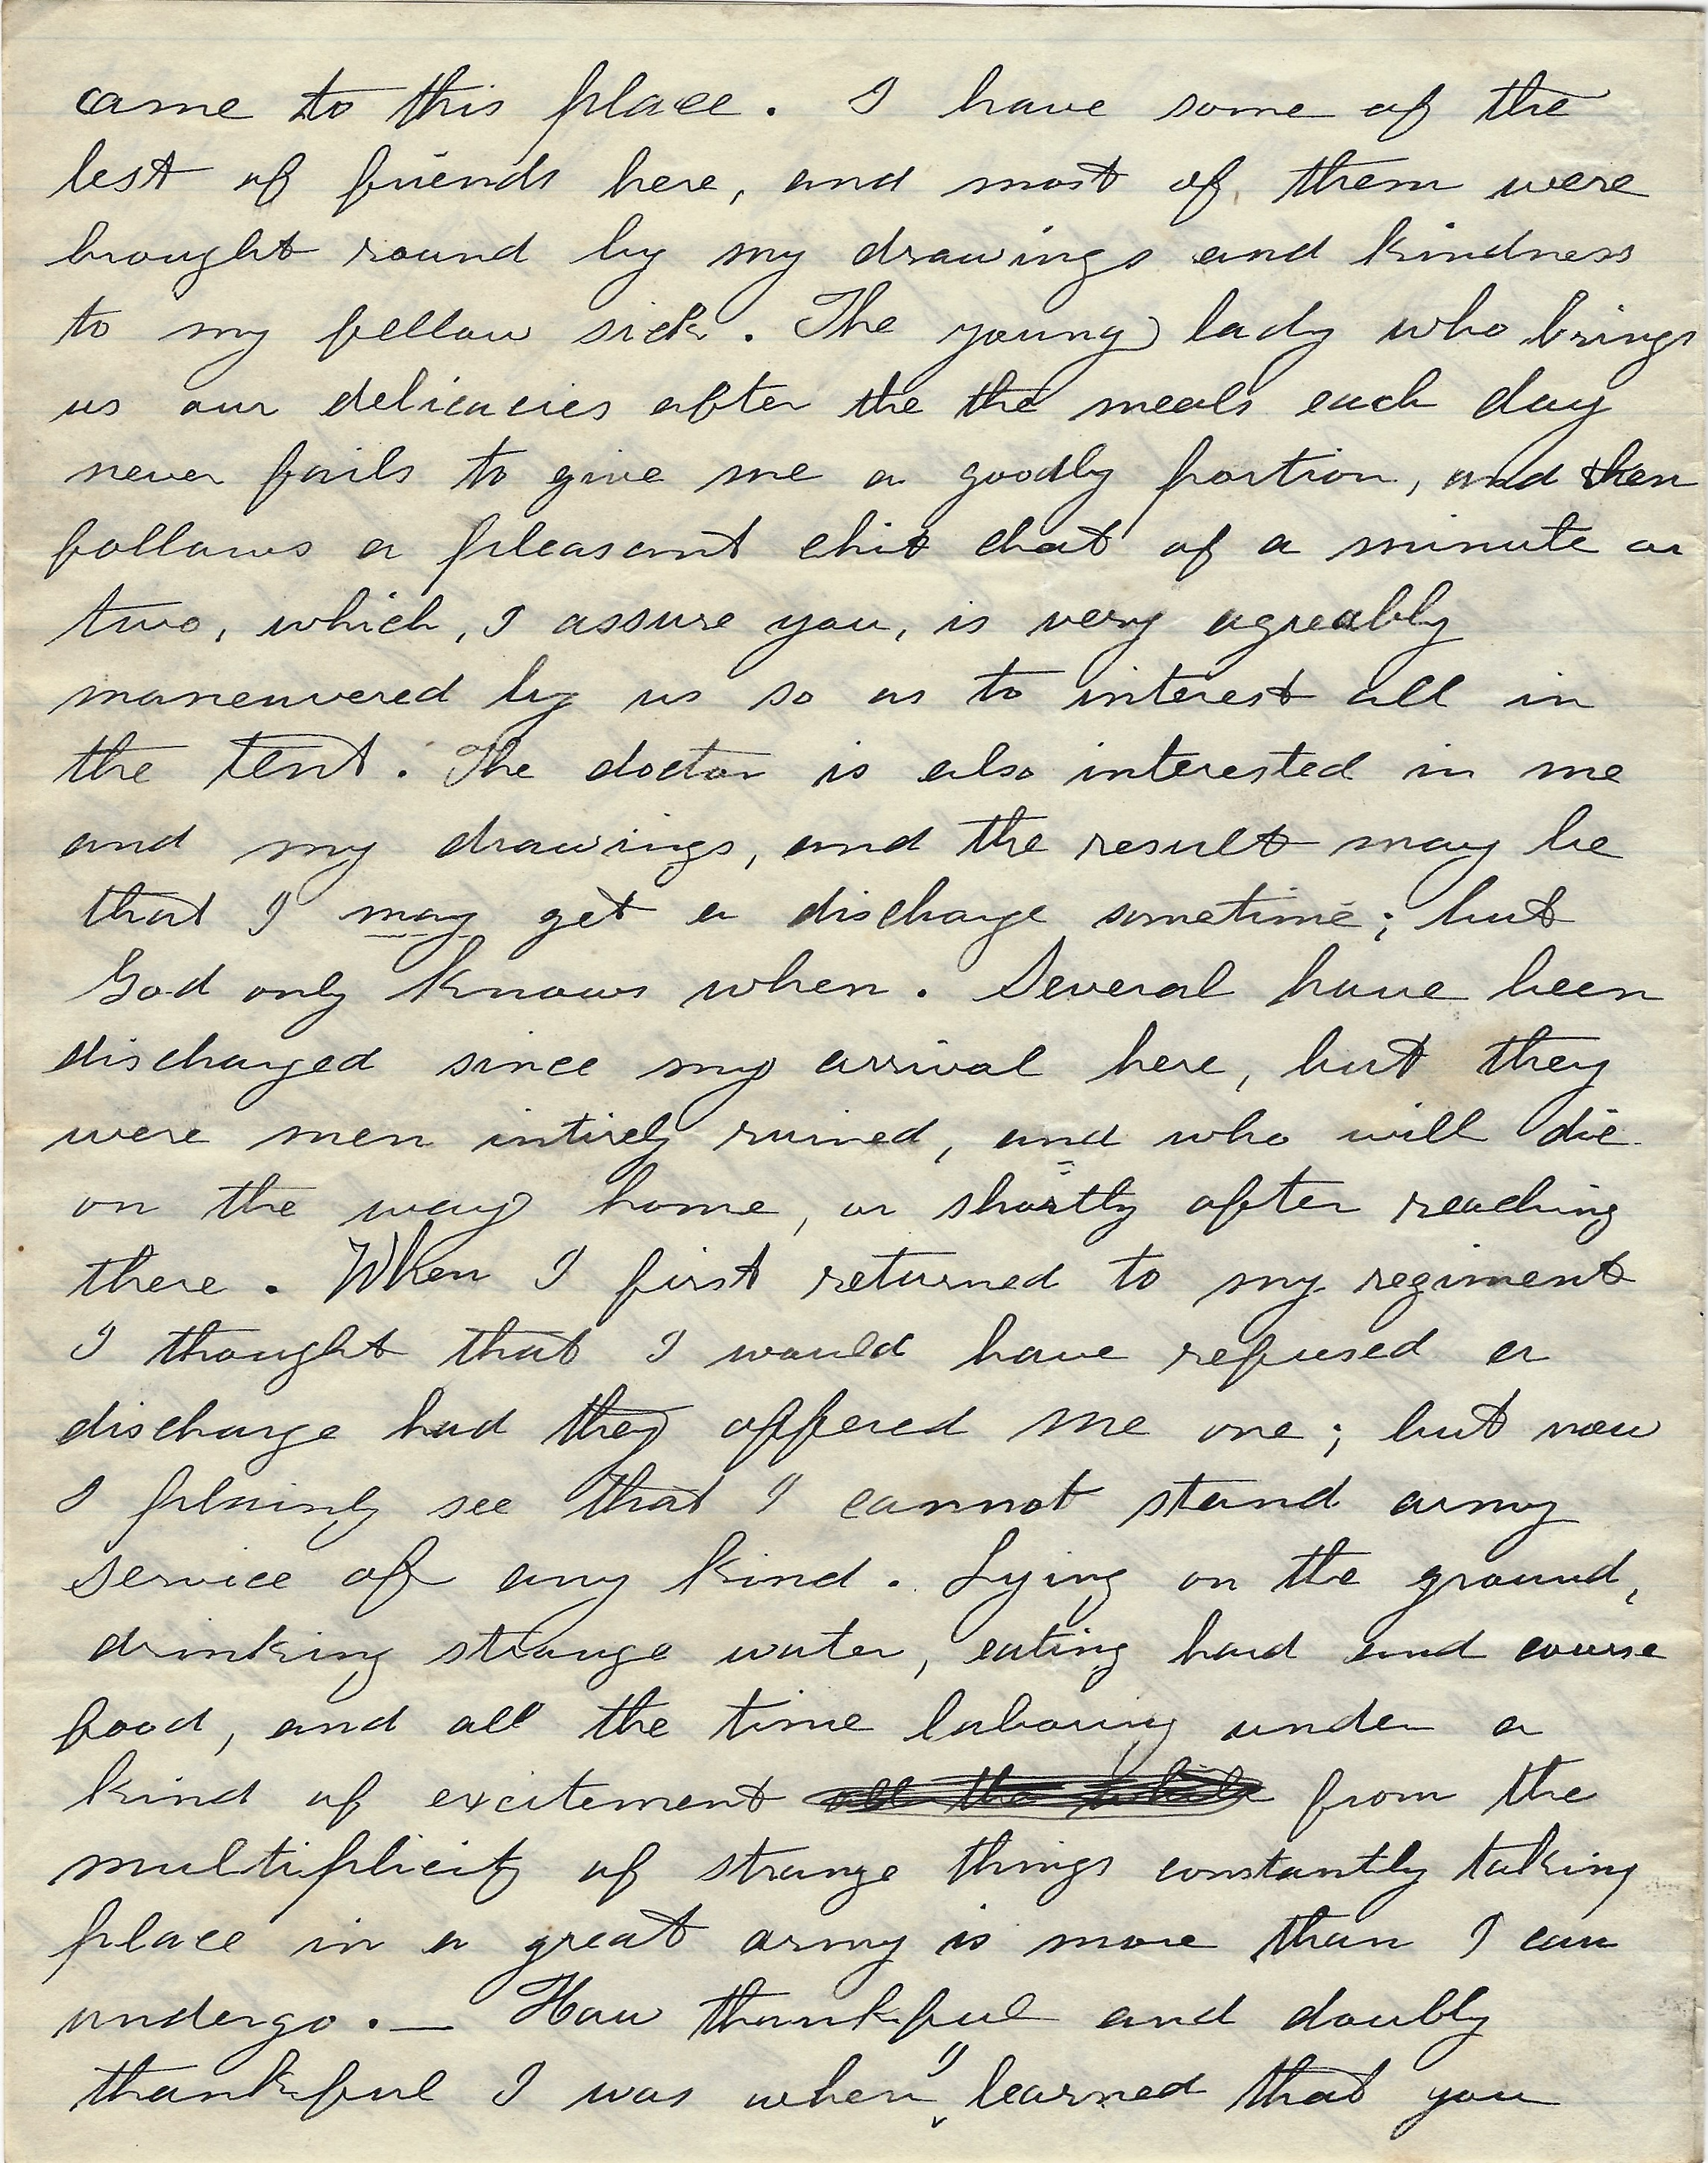 came to this place. I have some of the
best of friends here, and most of them were
brought round by my drawings and kindness
to my fellow sick. The young lady who brings
us our delicacies after the the meals each day
never fails to give me a goodly portion, and then
follows a pleasant chit chat of a minute or
two, which, I assure you, is very agreably
maneuvered by us so as to interest all in
the tent. The doctor is also interested in me
and my drawings, and the result may be
that I may get a discharge sometime; but
God only knows when. Several have been
discharged since my arrival here, but they
were men intirely ruined, and who will die
on the way home, or shortly after reaching
there. When I first returned to my regiment
I thought that I would have refused a
discharge had they offered me one; but now
I plainly see that I cannot stand army
service of any kind. Lying on the ground,
drinking strange water, eating hard and course
food, and all the time laboring under a
kind of excitement all the while from the
multiplicity of strange things constantly taking
place in a great army is more than I can
undergo. — How thankful and doubly
thankful I was when I learned that you